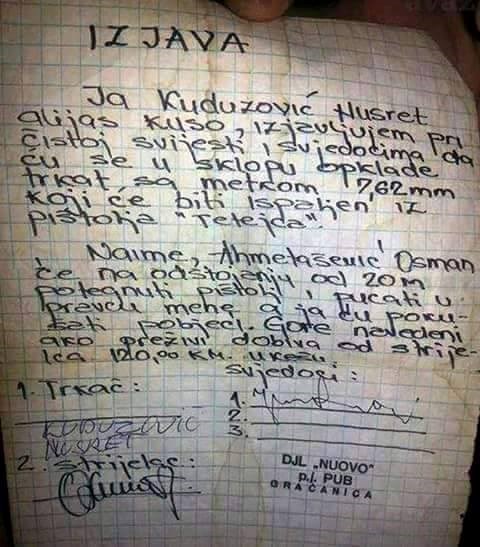 avaz
IZJAVA
Ja Kuduzović Nusret
alijas Kuso, izjavljujem pri
čistoj svijesti i svjedocima da
ću se u sklopu opklade
trkat sa metkom 7,62mm
koji će biti ispaljen iz
pištolja "Tetejca".
Naime, Ahmetašević Osman
će na odstojanju od 20m
potegnuti pištolj i pucati u
pravcu mene a ja ću poku-
šati pobjeći. Gore navedeni
ako preživi dobiva od strije-
lca 120,00 KM. u kešu.
svjedoci:
1. Trkač:
1.
KUDUZOVIĆ
NUSRET
2.
3.
2. strijelac:
DJL „NUOVO"
p.j. PUB
GRAČANICA